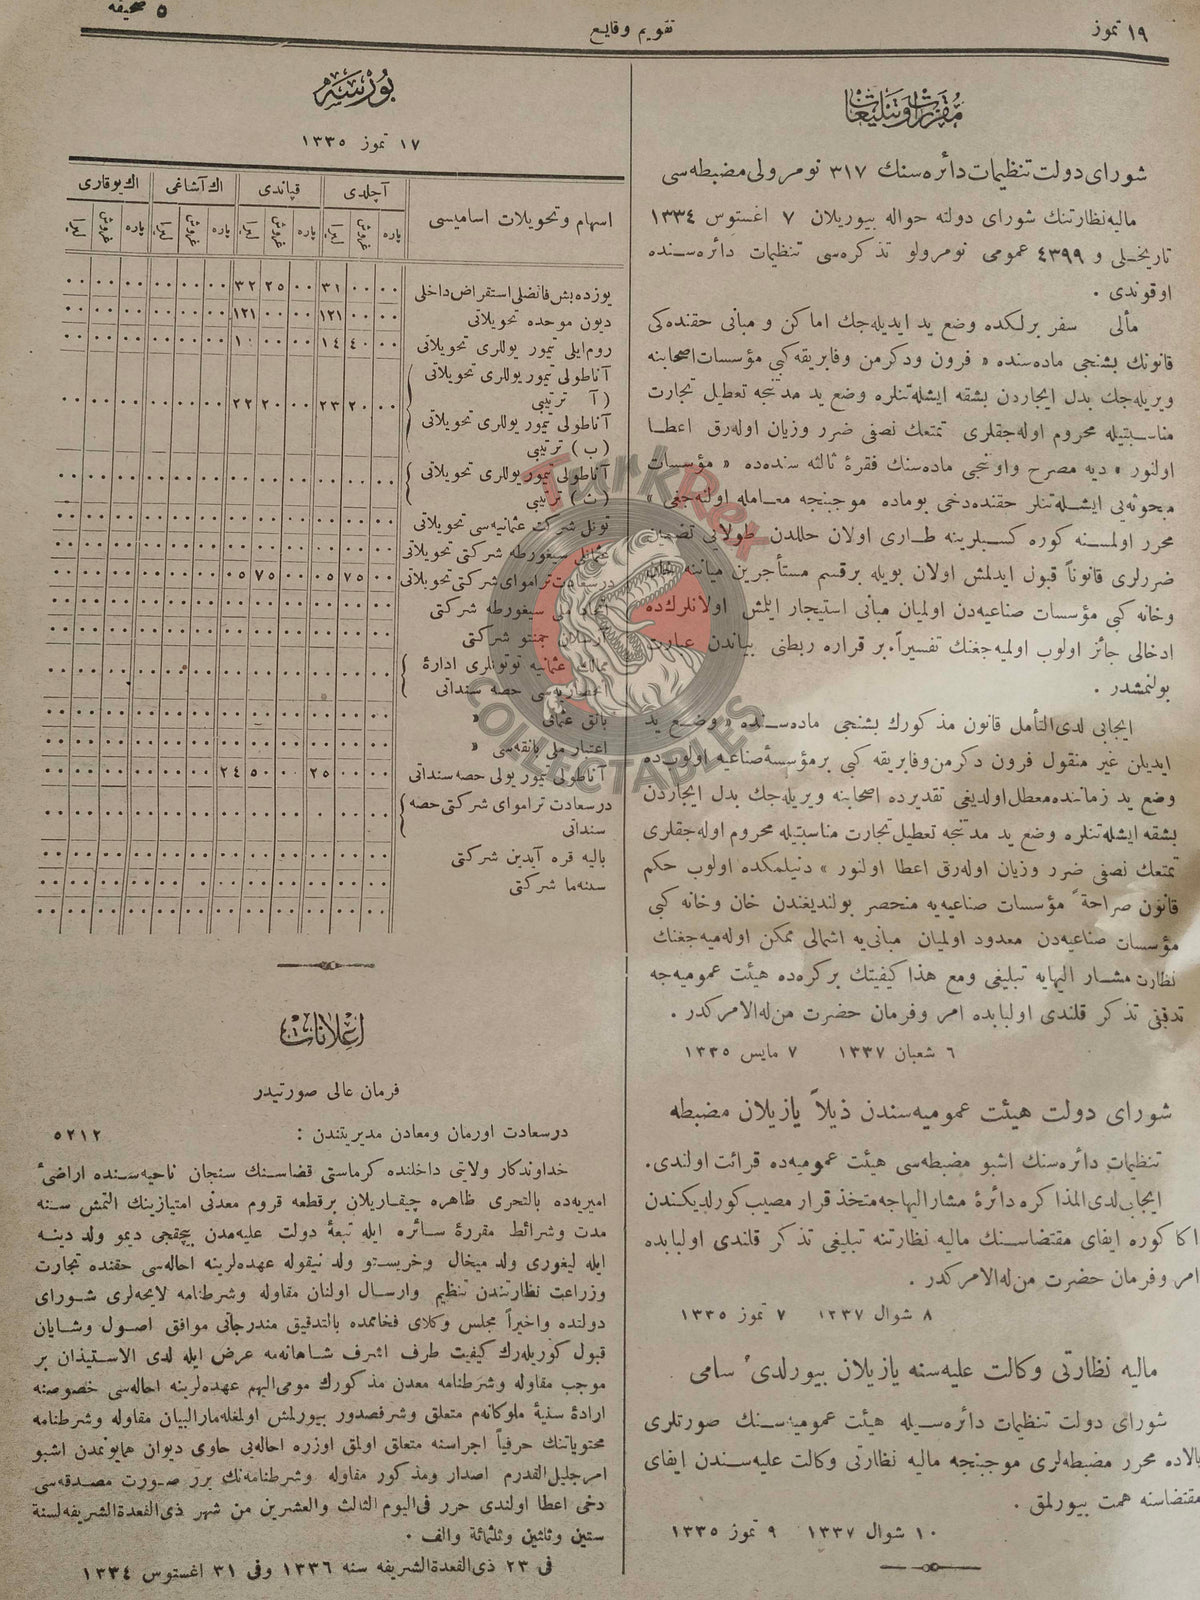 ١٩ تموز
تقويم وقايع
٥ صحيفه
مقررات وتبليغات
شورای دولت تنظيمات دائره سنك ٣١٧ نومرولی مضبطه سی
ماليه نظارتنك شورای دولته حواله بيوريلان ٧ اغستوس ١٣٣٤
تاريخلی و ٤٣٩٩ عمومی نومرولو تذكره سی تنظيمات دائره سنده
اوقوندی .
مألی سفر برلكده وضع يد ايديله جك اماكن و مبانی حقنده كی
قانونك بشنجی ماده سنده « فرون ودكرمن وفابريقه كبی مؤسسات اصحابنه
ويريله جك بدل ايجاردن بشقه ايشله تنلره وضع يد مدتنجه تعطيل تجارت
مناسبتيله محروم اوله جقلری تمتعك نصفی ضرر وزيان اوله رق اعطا
اولنور » ديه مصرح واوننجی ماده سنك فقرۀ ثالثه سنده ده « مؤسسات
مبحوثه يی ايشله تنلر حقنده دخی بوماده موجبنجه معامله اولنه جغی »
محرر اولمسنه كوره كسبلرينه طاری اولان خللدن طولايی تضمين
ضررلری قانوناً قبول ايدلمش اولان بويله برقسم مستأجرين مياننه خان
وخانه كبی مؤسسات صناعيه دن اولميان مبانی استيجار ايلمش اولانلرك ده
ادخالی جائز اولوب اولميه جغنك تفسيراً بر قراره ربطنی بياندن عبارت
بولنمشدر .
ايجابی لدی التأمل قانون مذكورك بشنجی ماده سنده « وضع يد
ايديلن غير منقول فرون دكرمن وفابريقه كبی برمؤسسۀ صناعيه اولوب ده
وضع يد زماننده معطل اولديغی تقديرده اصحابنه ويريله جك بدل ايجاردن
بشقه ايشله تنلره وضع يد مدتنجه تعطيل تجارت مناسبتيله محروم اوله جقلری
تمتعك نصفی ضرر وزيان اوله رق اعطا اولنور » دنيلمكده اولوب حكم
قانون صراحةً مؤسسات صناعيه يه منحصر بولنديغندن خان وخانه كبی
مؤسسات صناعيه دن معدود اولميان مبانی يه اشمالی ممكن اوله ميه جغنك
نظارت مشار اليهايه تبليغی ومع هذا كيفيتك بركره ده هيئت عموميه جه
تدقيقی تذكر قلندی اولبابده امر وفرمان حضرت من له الامركدر .
٦ شعبان ١٣٣٧ ٧ مايس ١٣٣٥
شورای دولت هيئت عموميه سندن ذيلاً يازيلان مضبطه
تنظيمات دائره سنك اشبو مضبطه سی هيئت عموميه ده قرائت اولندی .
ايجابی لدی المذاكره دائرۀ مشاراليهاجه متخذ قرار مصيب كورلديكندن
اكا كوره ايفای مقتضاسنك ماليه نظارتنه تبليغی تذكر قلندی اولبابده
امر وفرمان حضرت من له الامركدر .
٨ شوال ١٣٣٧ ٧ تموز ١٣٣٥
ماليه نظارتی وكالت عليه سنه يازيلان بيورلدیء سامی
شورای دولت تنظيمات دائره سيله هيئت عموميه سنك صورتلری
بالاده محرر مضبطه لری موجبنجه ماليه نظارتی وكالت عليه سندن ايفای
مقتضاسنه همت بيورلمق .
١٠ شوال ١٣٣٧ ٩ تموز ١٣٣٥
بورسه
١٧ تموز ١٣٣٥
اسهام وتحويلات اساميسی آچلدی قپاندی اك آشاغی اك يوقاری
پاره غروش ليرا پاره غروش ليرا پاره غروش ليرا پاره غروش ليرا
يوزده بش فائضلی استقراض داخلی ٠٠ ٠٠ ٣١ ٠٠ ٢٥ ٣٢ ٠٠ ٠٠ ٠٠ ٠٠ ٠٠ ٠٠
ديون موحده تحويلاتی ٠٠ ٠٠ ١٢١ ٠٠ ٠٠ ١٢١ ٠٠ ٠٠ ٠٠ ٠٠ ٠٠ ٠٠
روم ايلی تيمور يوللری تحويلاتی ٠٠ ٤٠ ١٤
آناطولی تيمور يوللری تحويلاتی
( آ ترتيبی ٠٠ ٢٠ ٢٣ ٠٠ ٢٠ ٢٢ ٠٠ ٠٠ ٠٠ ٠٠ ٠٠ ٠٠
آناطولی تيمور يوللری تحويلاتی
( ب ) ترتيبی
آناطولی تيمور يوللری تحويلاتی ٠٠ ٠٠ ٠٠ ٠٠ ٠٠ ٠٠ ٠٠ ٠٠ ٠٠ ٠٠ ٠٠ ٠٠
( ث ) ترتيبی
تونل شركت عثمانيه سی تحويلاتی ٠٠ ٠٠ ٠٠ ٠٠ ٠٠ ٠٠ ٠٠ ٠٠ ٠٠ ٠٠ ٠٠ ٠٠
عثمانلی سيغورطه شركتی تحويلاتی ٠٠ ٠٠ ٠٠ ٠٠ ٠٠ ٠٠ ٠٠ ٠٠ ٠٠ ٠٠ ٠٠ ٠٠
درسعادت تراموای شركتی تحويلاتی ٠٠ ٧٥ ٥ ٠٠ ٧٥ ٥ ٠٠ ٠٠ ٠٠ ٠٠ ٠٠ ٠٠
اتحاد ملی سيغورطه شركتی ٠٠ ٠٠ ٠٠ ٠٠ ٠٠ ٠٠ ٠٠ ٠٠ ٠٠ ٠٠ ٠٠ ٠٠
آرسلان چمنتو شركتی ٠٠ ٠٠ ٠٠ ٠٠ ٠٠ ٠٠ ٠٠ ٠٠ ٠٠ ٠٠ ٠٠ ٠٠
ممالك عثمانيه توتونلری ادارۀ ٠٠ ٠٠ ٠٠ ٠٠ ٠٠ ٠٠ ٠٠ ٠٠ ٠٠ ٠٠ ٠٠ ٠٠
انحصاريه سی حصه سنداتی
بانق عثمانی » ٠٠ ٠٠ ٠٠ ٠٠ ٠٠ ٠٠ ٠٠ ٠٠ ٠٠ ٠٠ ٠٠ ٠٠
اعتبار ملی بانقه سی » ٠٠ ٠٠ ٠٠ ٠٠ ٠٠ ٠٠ ٠٠ ٠٠ ٠٠ ٠٠ ٠٠ ٠٠
آناطولی تيمور يولی حصه سنداتی ٠٠ ٠٠ ٢٥ ٠٠ ٥٠ ٢٤ ٠٠ ٠٠ ٠٠ ٠٠ ٠٠ ٠٠
درسعادت تراموای شركتی حصه ٠٠ ٠٠ ٠٠ ٠٠ ٠٠ ٠٠ ٠٠ ٠٠ ٠٠ ٠٠ ٠٠ ٠٠
سنداتی
باليه قره آيدين شركتی ٠٠ ٠٠ ٠٠ ٠٠ ٠٠ ٠٠ ٠٠ ٠٠ ٠٠ ٠٠ ٠٠ ٠٠
سينه ما شركتی ٠٠ ٠٠ ٠٠ ٠٠ ٠٠ ٠٠ ٠٠ ٠٠ ٠٠ ٠٠ ٠٠ ٠٠
٠٠ ٠٠ ٠٠ ٠٠ ٠٠ ٠٠ ٠٠ ٠٠ ٠٠ ٠٠ ٠٠ ٠٠
اعلانات
فرمان عالی صورتيدر
درسعادت اورمان ومعادن مديريتندن : ٥٢١٢
خداوندكار ولايتی داخلنده كرماستی قضاسنك سنجان ناحيه سنده اراضیء
اميريه ده بالتحری ظاهره چيقاريلان برقطعه قروم معدنی امتيازينك التمش سنه
مدت وشرائط مقررۀ سائره ايله تبعۀ دولت عليه مدن بيچقجی ديمو ولد دينه
ايله ليغوری ولد ميخال وخريستو ولد نيقوله عهده لرينه احاله سی حقنده تجارت
وزراعت نظارتندن تنظيم وارسال اولنان مقاوله وشرطنامه لايحه لری شورای
دولتده واخيراً مجلس وكلای فخاممده بالتدقيق مندرجاتی موافق اصول وشايان
قبول كوريله رك كيفيت طرف اشرف شاهانه مه عرض ايله لدی الاستيذان بر
موجب مقاوله وشرطنامه معدن مذكورك مومی اليهم عهده لرينه احاله سی خصوصنه
ارادۀ سنيۀ ملوكانه م متعلق وشرفصدور بيورلمش اولمغله مارالبيان مقاوله وشرطنامه
محتوياتنك حرفياً اجراسنه متعلق اولمق اوزره احاله يی حاوی ديوان همايونمدن اشبو
امر جليل القدرم اصدار ومذكور مقاوله وشرطنامه نك برر صورت مصدقه سی
دخی اعطا اولندی حرر فی اليوم الثالث والعشرين من شهر ذی القعدة الشريفه لسنة
ستين وثلثين وثلثمائة والف .
فی ٢٣ ذی القعدة الشريفه سنه ١٣٣٦ وفی ٣١ اغستوس ١٣٣٤
TurkRex
COLLECTABLES